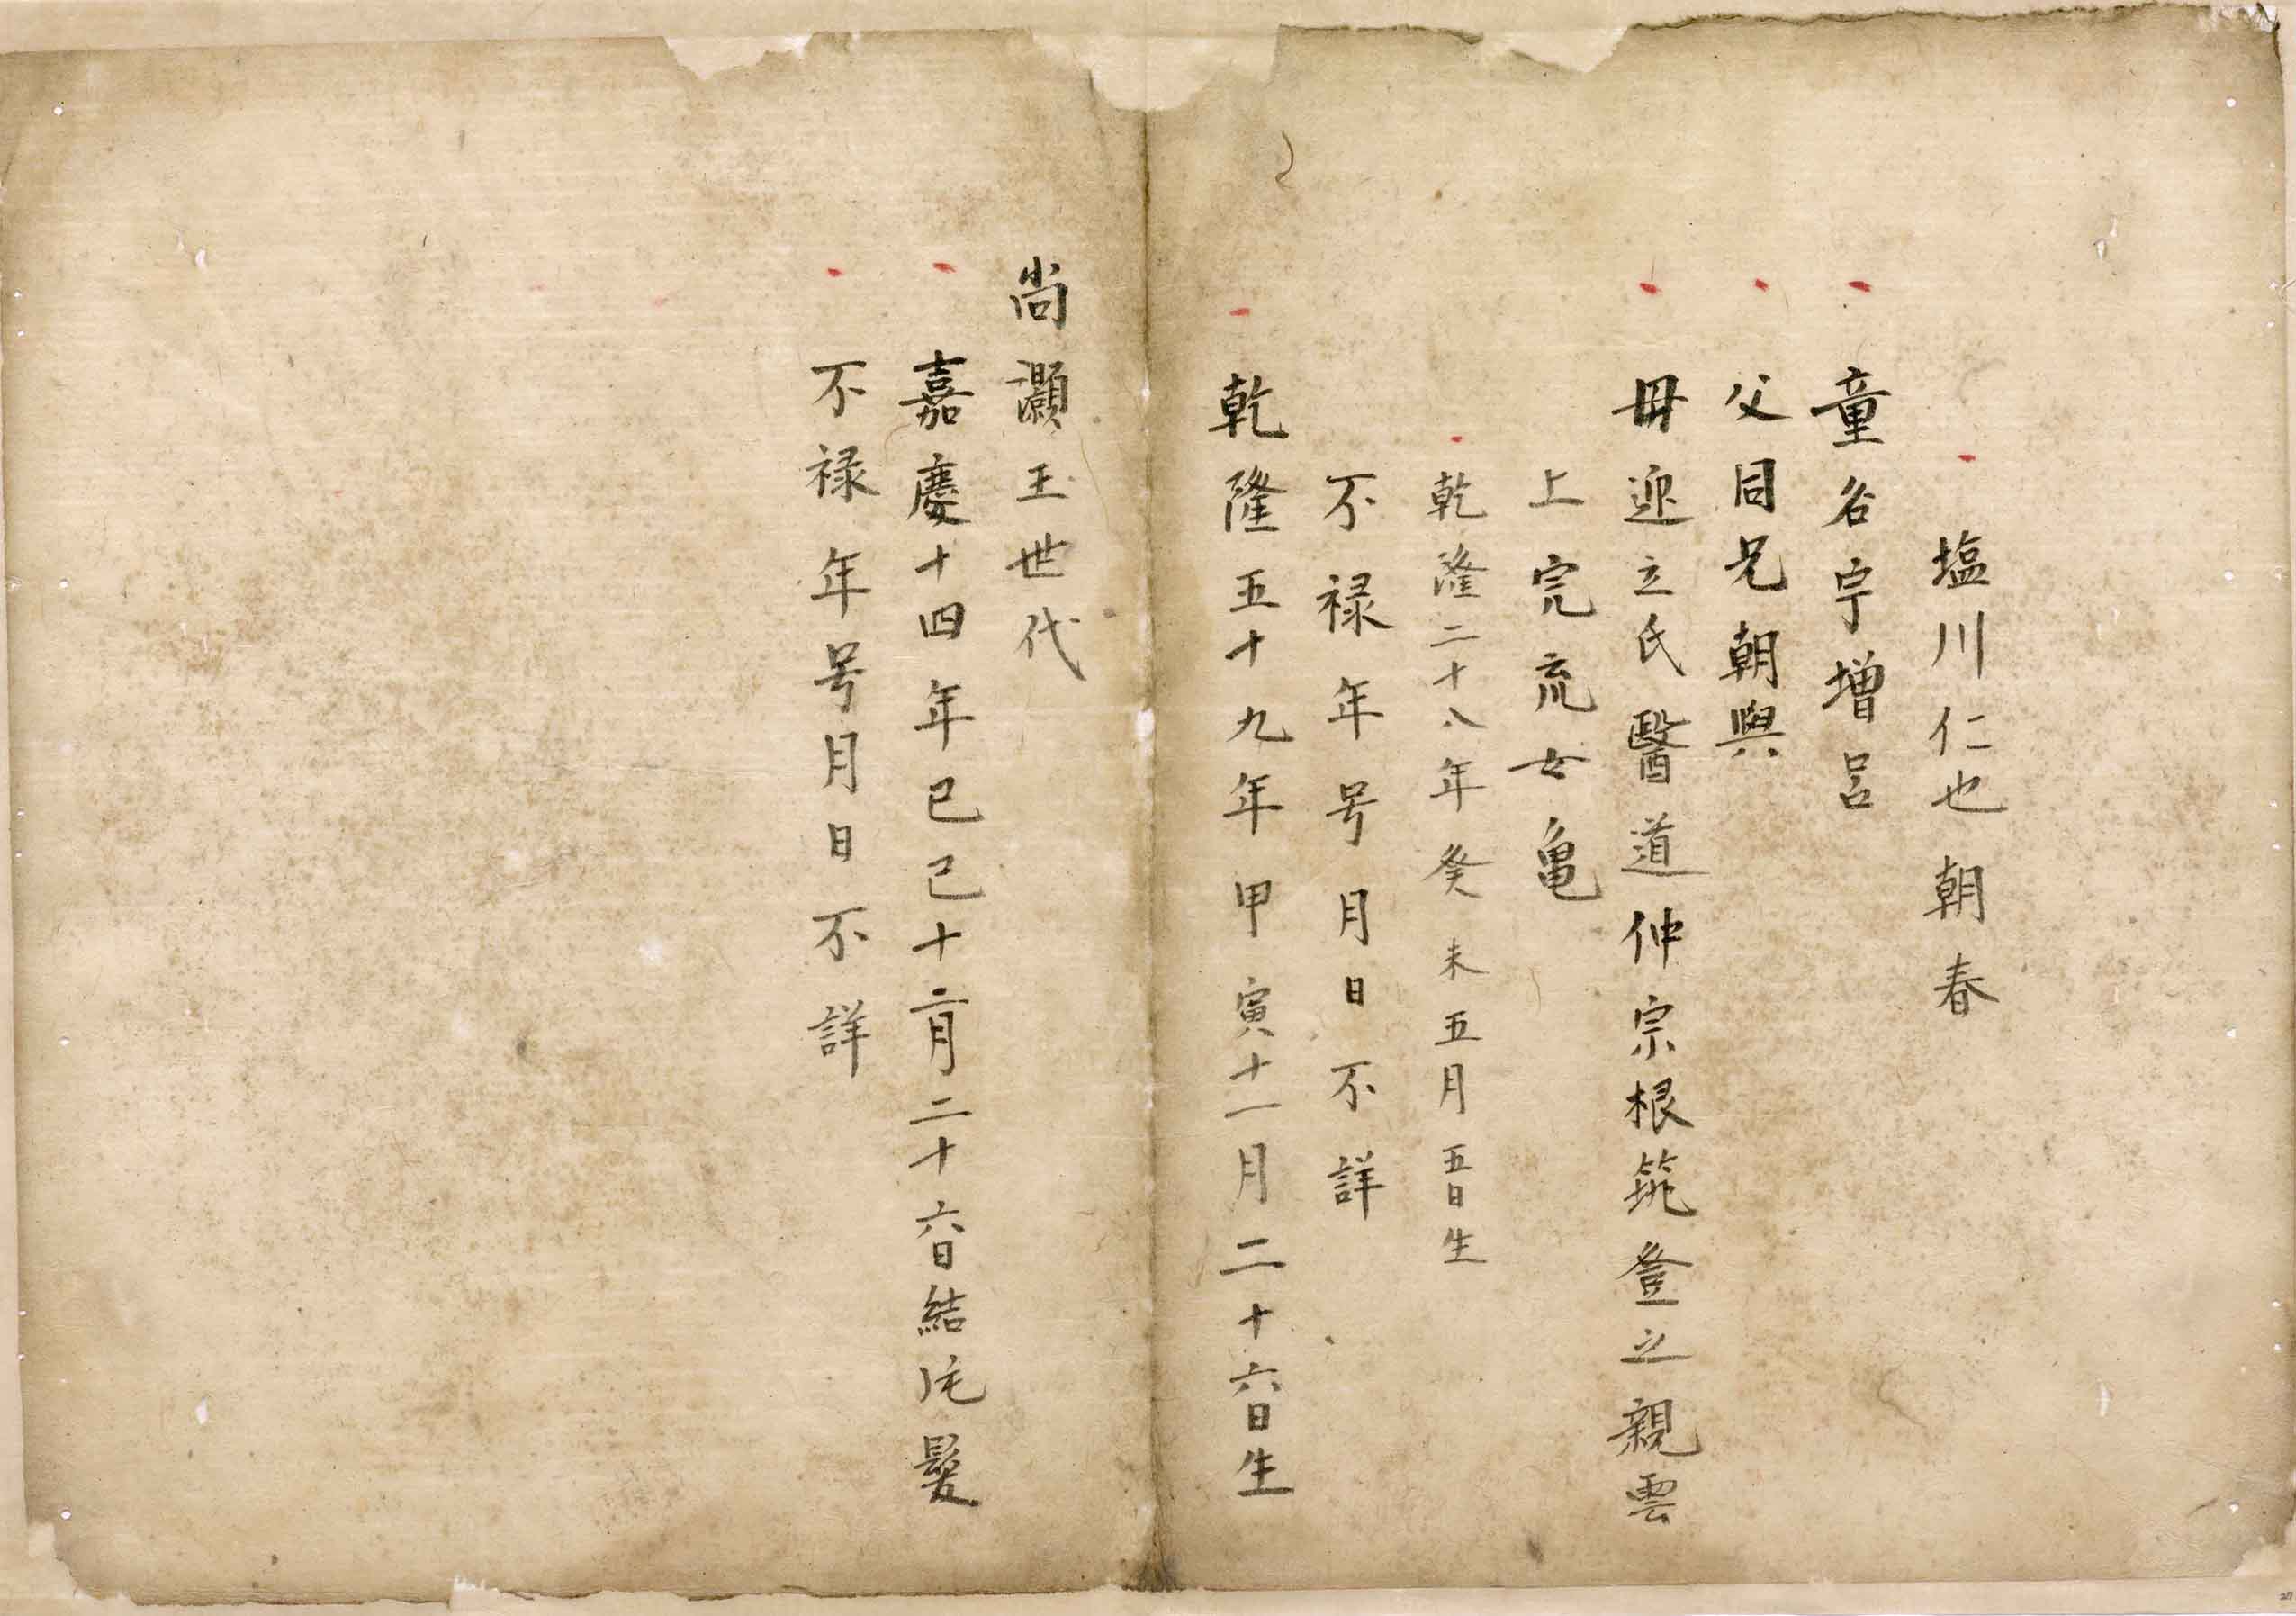 塩川仁也朝春
童名宇増呂
父同兄朝與
毋迎立氏醫道仲宗根筑登之親雲
上完流女亀
乾隆二十八年癸未五月五日生
不禄年号月日不詳
乾隆五十九年甲寅十一月二十六日生
尚灝王世代
嘉慶十四年己巳十二月二十六日結片髪
不禄年号月日不詳